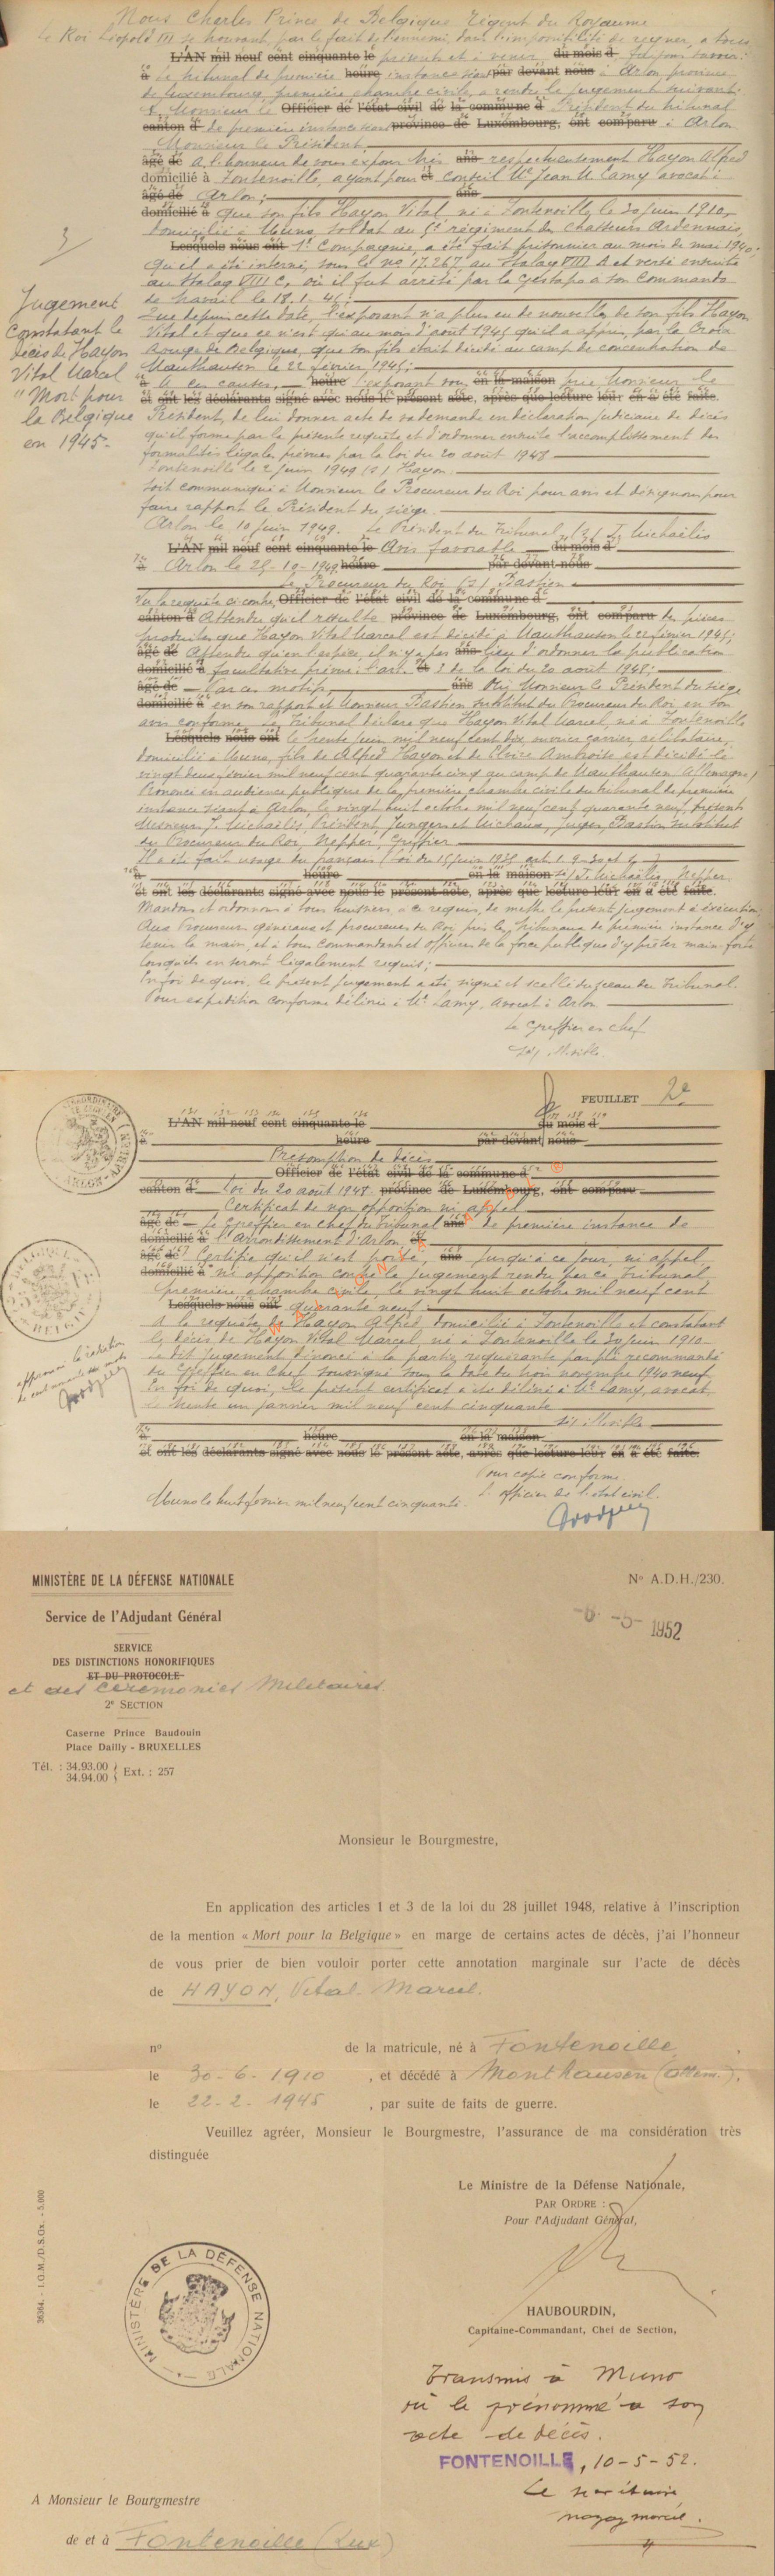 Nous Charles Prince de Belgique Régent du Royaume
Le Roi Léopold III se trouvant, par le fait de l'ennemi, dans l'impossibilité de régner, à tous
L'AN mil neuf cent cinquante le présents et à venir du mois d faisons savoir:
à Le tribunal de première heure instance séant par devant nous à Arlon province
de Luxembourg, première chambre civile, a rendu le jugement suivant:
A Monsieur le Officier de l'état civil de la commune d Président du tribunal
canton d de première instance séant province de Luxembourg, ont comparu à Arlon
Monsieur le Président,
âgé de A l'honneur de vous exposer très ans respectueusement Hayon Alfred
domicilié à Fontenoille, ayant pour et conseil Me Jean M. Lamy avocat à
âgé de Arlon; ans
domicilié à que son fils Hayon Vital, né à Fontenoille, le 30 juin 1910,
domicilié à Muno, soldat au 5e régiment des chasseurs Ardennais,
Lesquels nous ont 1e Compagnie, a été fait prisonnier au mois de mai 1940;
Qu'il a été interné, sous le no 17.267 au Stalag VIII A et versé ensuite
au Stalag VIII C, où il fut arrêté par la Gestapo à son Commando
de travail le 18.1.45;
Que depuis cette date, l'exposant n'a plus eu de nouvelles de son fils Hayon
Vital et que ce n'est qu'au mois d'août 1945 qu'il a appris, par la Croix
Rouge de Belgique, que son fils était décédé au camp de concentration de
Mauthausen le 22 février 1945;
à A ces causes, heure l'exposant vous en la maison prie Monsieur le
et ont les déclarants signé avec nous le présent acte, après que lecture leur en a été faite.
Président, de lui donner acte de sa demande en déclaration judiciaire de décès
qu'il forme par la présente requête et d'ordonner ensuite l'accomplissement des
formalités légales prévues par la loi du 20 août 1948
Fontenoille le 2 juin 1949 (s) Hayon.
Soit communiqué à Monsieur le Procureur du Roi pour avis et désignons pour
faire rapport le Président du siège.
Arlon le 10 juin 1949. Le Président du Tribunal, (s) J. Michaëlis
L'AN mil neuf cent cinquante le Avis favorable du mois d
à Arlon le 25-10-1949 heure par devant nous
Le Procureur du Roi (s) Bastien
Vu la requête ci-contre, Officier de l'état civil de la commune d
canton d Attendu qu'il résulte province de Luxembourg, ont comparu des pièces
produites que Hayon Vital Marcel est décédé à Mauthausen le 22 février 1945;
âgé de Attendu qu'en l'espèce il n'y a pas ans lieu d'ordonner la publication
domicilié à facultative prévue à l'art. et 3 de la loi du 20 août 1948;
âgé de Par ces motifs, ans Ouï Monsieur le Président du siège
domicilié à en son rapport et Monsieur Bastien substitut du Procureur du Roi en son
avis conforme. Le Tribunal déclare que Hayon Vital Marcel, né à Fontenoille
Lesquels nous ont le trente juin mil neuf cent dix, ouvrier carrier célibataire,
domicilié à Muno, fils de Alfred Hayon et de Eloïse Ambroise est décédé le
vingt deux février mil neuf cent quarante cinq au camp de Mauthausen (Allemagne)
Prononcé en audience publique de la première chambre civile du tribunal de première
instance séant à Arlon, le vingt huit octobre mil neuf cent quarante neuf, présents
Messieurs J. Michaëlis, Président, Jungers et Michaux, juges, Bastien substitut
du Procureur du Roi, Nepper, Greffier
Il a été fait usage du français (loi du 15 juin 1935 art. 1.
à heure en la maison (s) J. Michaëlis, Nepper
et ont les déclarants signé avec nous le présent acte, après que lecture leur en a été faite.
Mandons et ordonnons à tous huissiers à ce requis, de mettre le présent jugement à exécution.
Aux Procureurs généraux et procureurs du Roi près les Tribunaux de première instance d'y
tenir la main, et à tous commandants et officiers de la force publique d'y prêter main-forte
lorsqu'ils en seront légalement requis;
En foi de quoi, le présent jugement a été signé et scellé du sceau du Tribunal.
Pour expédition conforme délivrée à Me Lamy, avocat à Arlon
Le greffier en chef
3
Jugement
Constatant le
décès de Hayon
Vital Marcel
"Mort pour
la Belgique
en 1945.
FEUILLET 2e
L'AN mil neuf cent cinquante le du mois d
à heure par devant nous
Présomption de décès
Officier de l'état civil de la commune d
canton d Loi du 20 août 1948 province de Luxembourg, ont comparu
Certificat de non opposition ni appel
âgé de Le Greffier en chef du Tribunal ans de première instance de
domicilié à l'Arrondissement d'Arlon et
âgé de Certifie qu'il n'est porté, ans jusqu'à ce jour, ni appel
domicilié à ni opposition contre le jugement rendu par ce Tribunal
première chambre civile, le vingt huit octobre mil neuf cent
Lesquels nous ont quarante neuf
A la requête de Hayon Alfred, domicilié à Fontenoille et constatant
le décès de Hayon Vital Marcel, né à Fontenoille le 30 juin 1910.
Le dit jugement dénoncé à la partie requérante par pli recommandé
du Greffier en Chef soussigné sous la date du trois novembre 1940 neuf.
En foi de quoi, le présent certificat a été délivré à Me Lamy, avocat,
le trente un janvier mil neuf cent cinquante
à heure en la maison
et ont les déclarants signé avec nous le présent acte, après que lecture leur en a été faite.
Pour copie conforme.
Muno le huit février mil neuf cent cinquante. L'officier de l'état civil.
WALLONIA
MINISTÈRE DE LA DÉFENSE NATIONALE
No A.D.H./230.
Service de l'Adjudant Général
-6. -5- 1952
SERVICE
DES DISTINCTIONS HONORIFIQUES
ET DU PROTOCOLE
et des Cérémonies Militaires.
2e SECTION
Caserne Prince Baudouin
Place Dailly - BRUXELLES
Tél. : 34.93.00
34.94.00 } Ext. : 257
Monsieur le Bourgmestre,
En application des articles 1 et 3 de la loi du 28 juillet 1948, relative à l'inscription
de la mention « Mort pour la Belgique » en marge de certains actes de décès, j'ai l'honneur
de vous prier de bien vouloir porter cette annotation marginale sur l'acte de décès
de HAYON, Vital Marcel.
no de la matricule, né à Fontenoille,
le 30-6-1910, et décédé à Monthausen (Allem.),
le 22-2-1945, par suite de faits de guerre.
Veuillez agréer, Monsieur le Bourgmestre, l'assurance de ma considération très
distinguée
Le Ministre de la Défense Nationale,
PAR ORDRE :
Pour l'Adjudant Général,
MINISTÈRE DE LA DÉFENSE NATIONALE
HAUBOURDIN,
Capitaine-Commandant, Chef de Section,
36364. - I.G.M./D.S.Gx. - 5.000
Transmis à Muno
où le prénommé a son
acte de décès.
FONTENOILLE, 10-5-52.
Le secrétaire
A Monsieur le Bourgmestre
de et à Fontenoille (Lux)